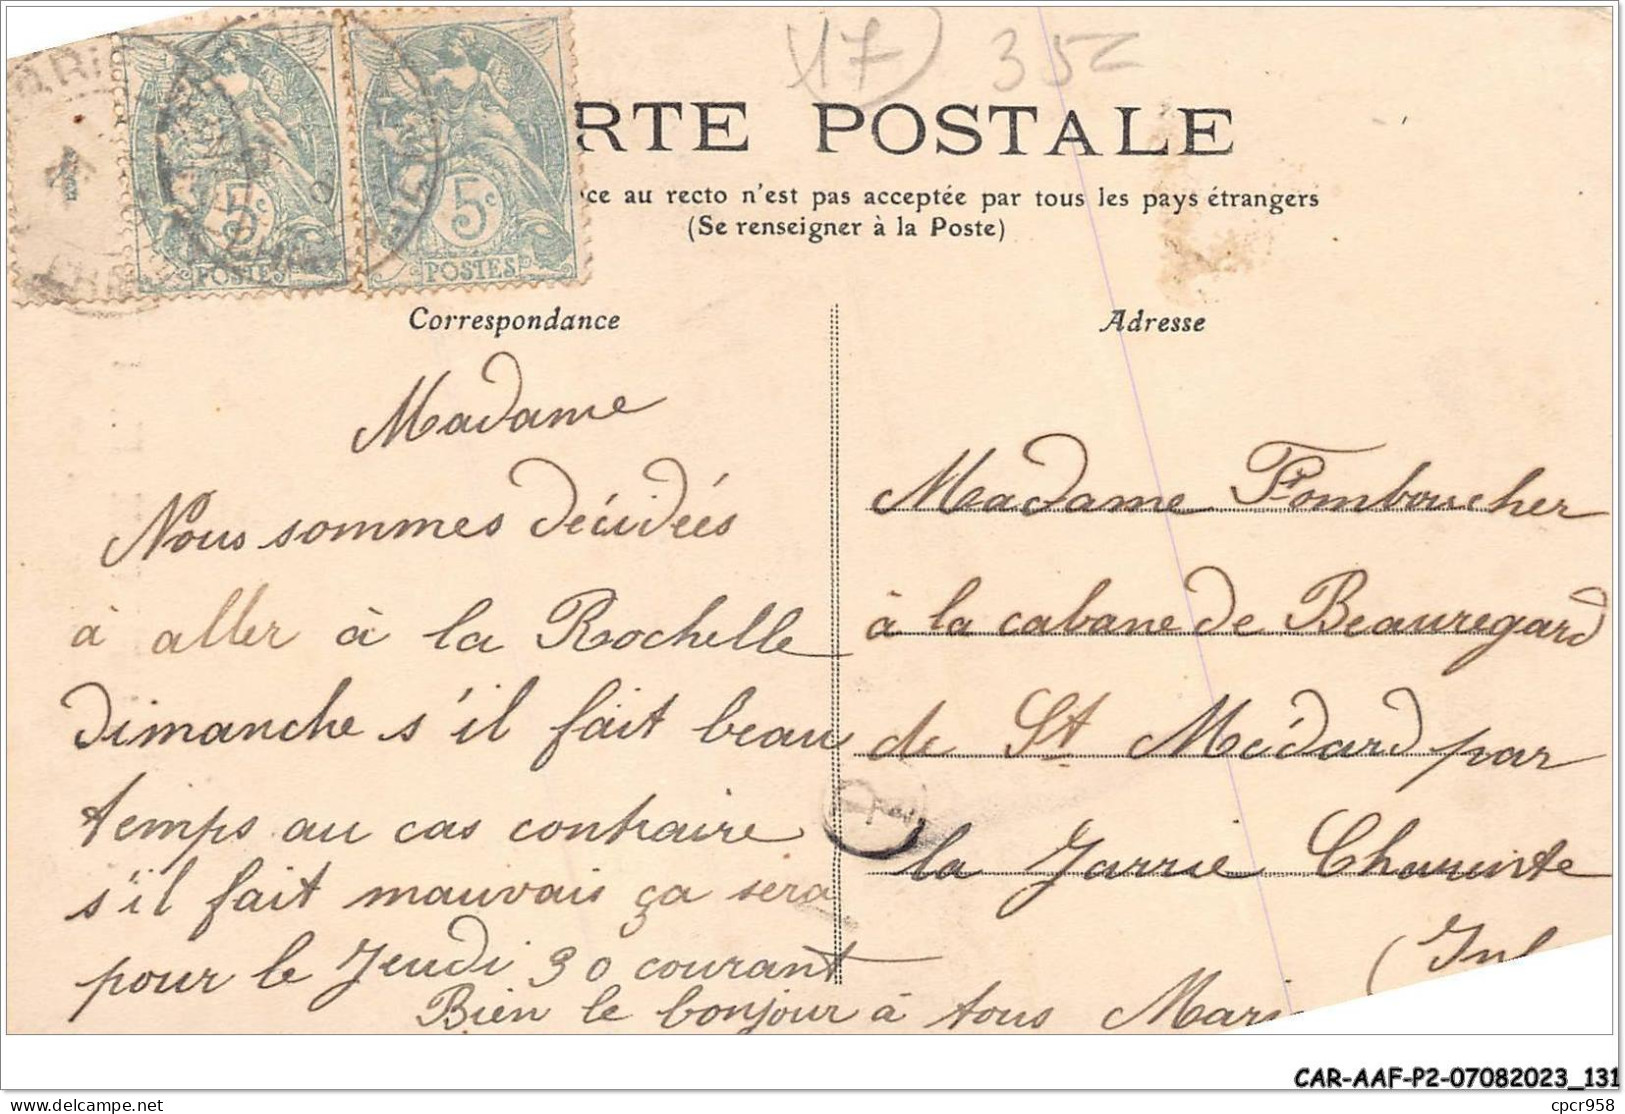 17 352
RTE POSTALE
ce au recto n'est pas acceptée par tous les pays étrangers
(Se renseigner à la Poste)
5c
POSTES
5c
POSTES
Correspondance
Madame
Nous sommes décidées
à aller à la Rochelle
dimanche s'il fait beau
temps au cas contraire
s'il fait mauvais ça sera
pour le Jeudi 30 courant
Bien le bonjour à tous Mari
Adresse
Madame Fomboucher
à la cabane de Beauregard
de St Médard par
la Jarrie Charente
(Inf
CAR-AAF-P2-07082023_131
delcampe.net
cpcr958